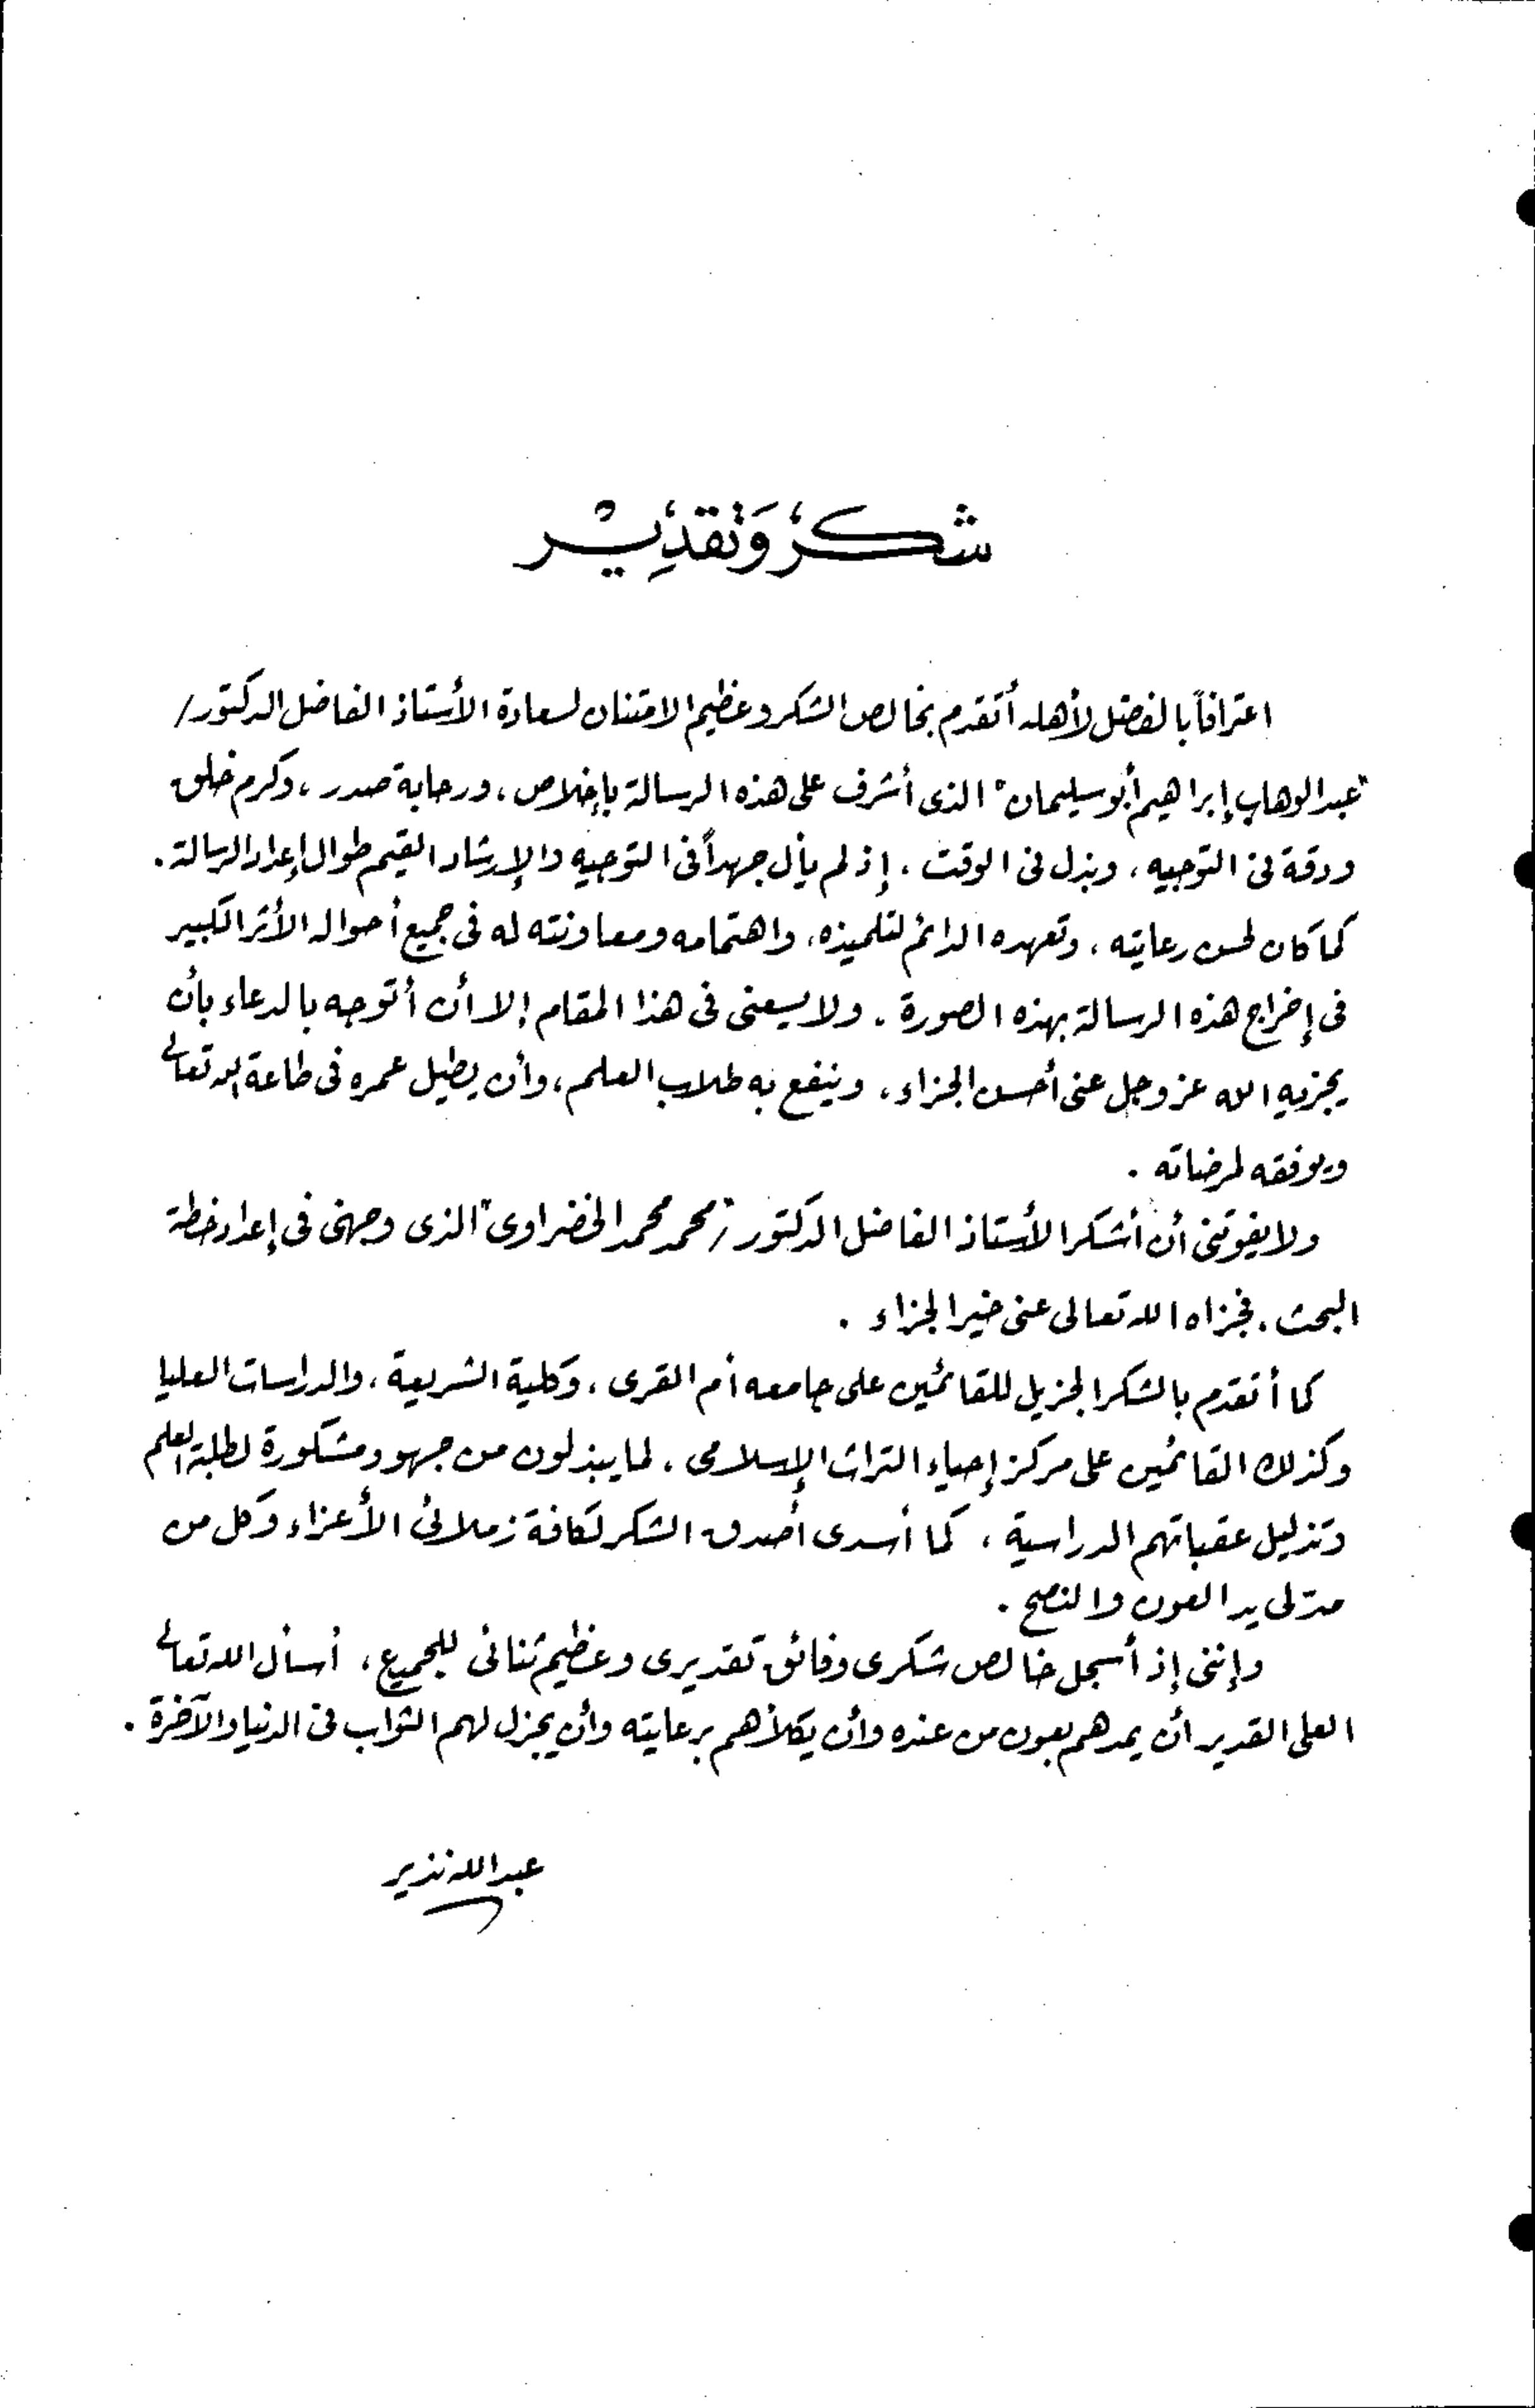 شكر وتقدير
اعترافاً بالفضل لأهله أتقدم بخالص الشكر وعظيم الامتنان لسعادة الأستاذ الفاضل الدكتور /
"عبد الوهاب إبراهيم أبو سليمان" الذى أشرف على هذه الرسالة بإخلاص ، ورحابة صدر ، وكرم خلق
ودقة فى التوجيه ، وبذل فى الوقت ، إذ لم يأل جهداً فى التوجيه والإرشاد القيم طوال إعداد الرسالة .
كما كان لحسن رعايته ، وتعهده الدائم لتلميذه ، واهتمامه ومعاونته له فى جميع أحواله الأثر الكبير
فى إخراج هذه الرسالة بهذه الصورة . ولا يسعنى فى هذا المقام إلا أن أتوجه بالدعاء بأن
يجزيه الله عز وجل عنى أحسن الجزاء ، وينفع به طلاب العلم ، وأن يطيل عمره فى طاعة الله تعالى
ويوفقه لمرضاته .
ولا يفوتنى أن أشكر الأستاذ الفاضل الدكتور / "محمد محمد الخضراوى" الذى وجهنى فى إعداد خطة
البحث . فجزاه الله تعالى عنى خير الجزاء .
كما أتقدم بالشكر الجزيل للقائمين على جامعه أم القرى ، وكلية الشريعة ، والدراسات العليا
وكذلك القائمين على مركز إحياء التراث الإسلامى ، لما يبذلون من جهود مشكورة لطلبة العلم
وتذليل عقباتهم الدراسية ، كما أسدى أصدق الشكر لكافة زملائى الأعزاء وكل من
مد لى يد العون والنصح .
وإننى إذ أسجل خالص شكرى وفائق تقديرى وعظيم ثنائى للجميع ، أسأل الله تعالى
العلى القدير أن يمدهم بعون من عنده وأن يكلأهم برعايته وأن يجزل لهم الثواب فى الدنيا والآخرة .
عبد الله نذير